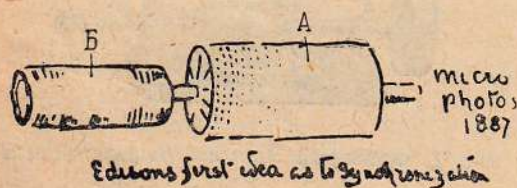 Б
А
micro
photos
1887
Edisons first idea as to synchronization